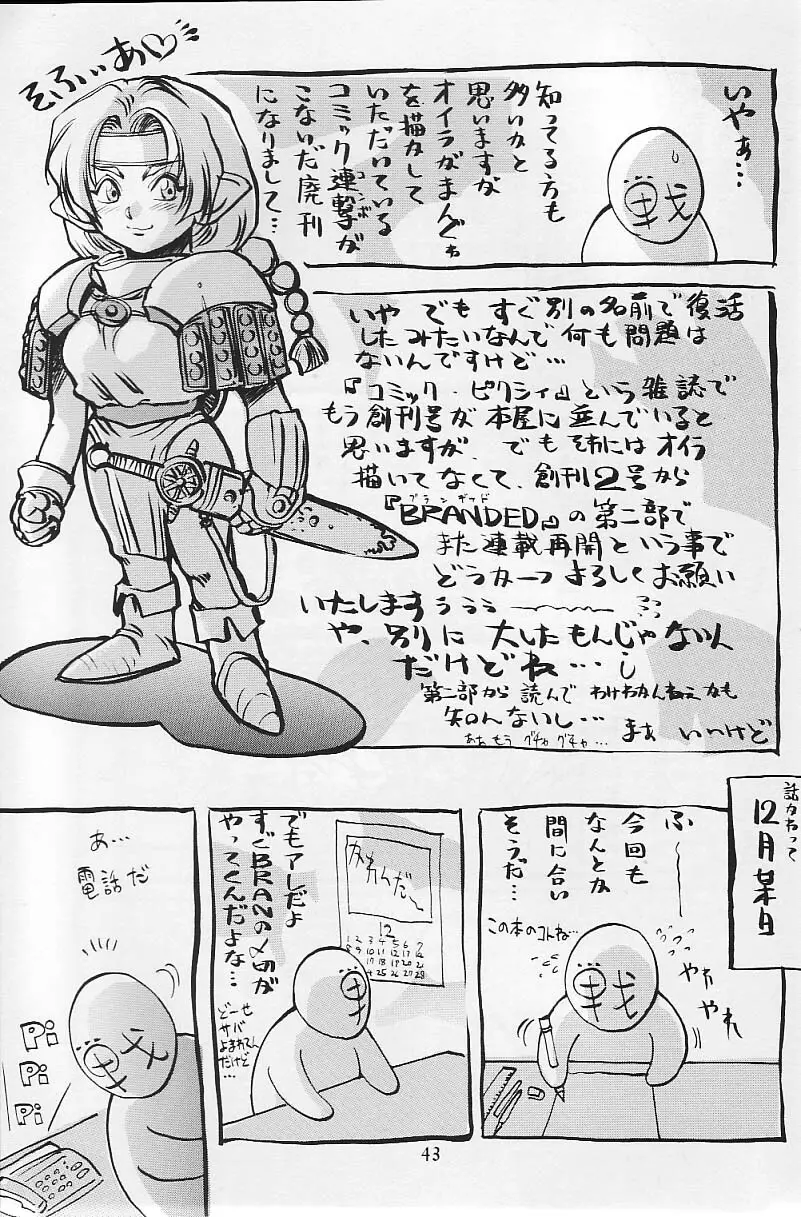 そふぃあ♡
いやぁ…
知ってる方も
多いかと
思いますが
オイラがまんがぁ
を描かして
いただいている
コミック連撃が
コンボ
こないだ廃刊
になりまして…
戦
いや でも すぐ別の名前で復活
したみたいなんで何も問題は
ないんですけど…
『コミック・ピクシィ』という雑誌で
もう創刊号が本屋に並んでいると
思いますが、でもそれにはオイラ
描いてなくて、創刊2号から
『BRANDED』の第二部で
また連載再開という事で
どうか一つよろしくお願い
いたしますぅぅぅ
や、別に大したもんじゃないん
だけどね…
第二部から読んで わけわかんねえかも
知んないし… まぁ いいけど
ああもう グチャグチャ…
話かわって
12月某日
ふ〜
今回も
なんとか
間に合い
そうだ…
この本のコトね…
やれ
やれ
戦
でもアレだよ
すぐBRANの〆切が
やってくんだよな…
どーせ
サバ
よまれてん
だけど
…
12
戦
あ…
電話だ
Pi
Pi
Pi
戦
43